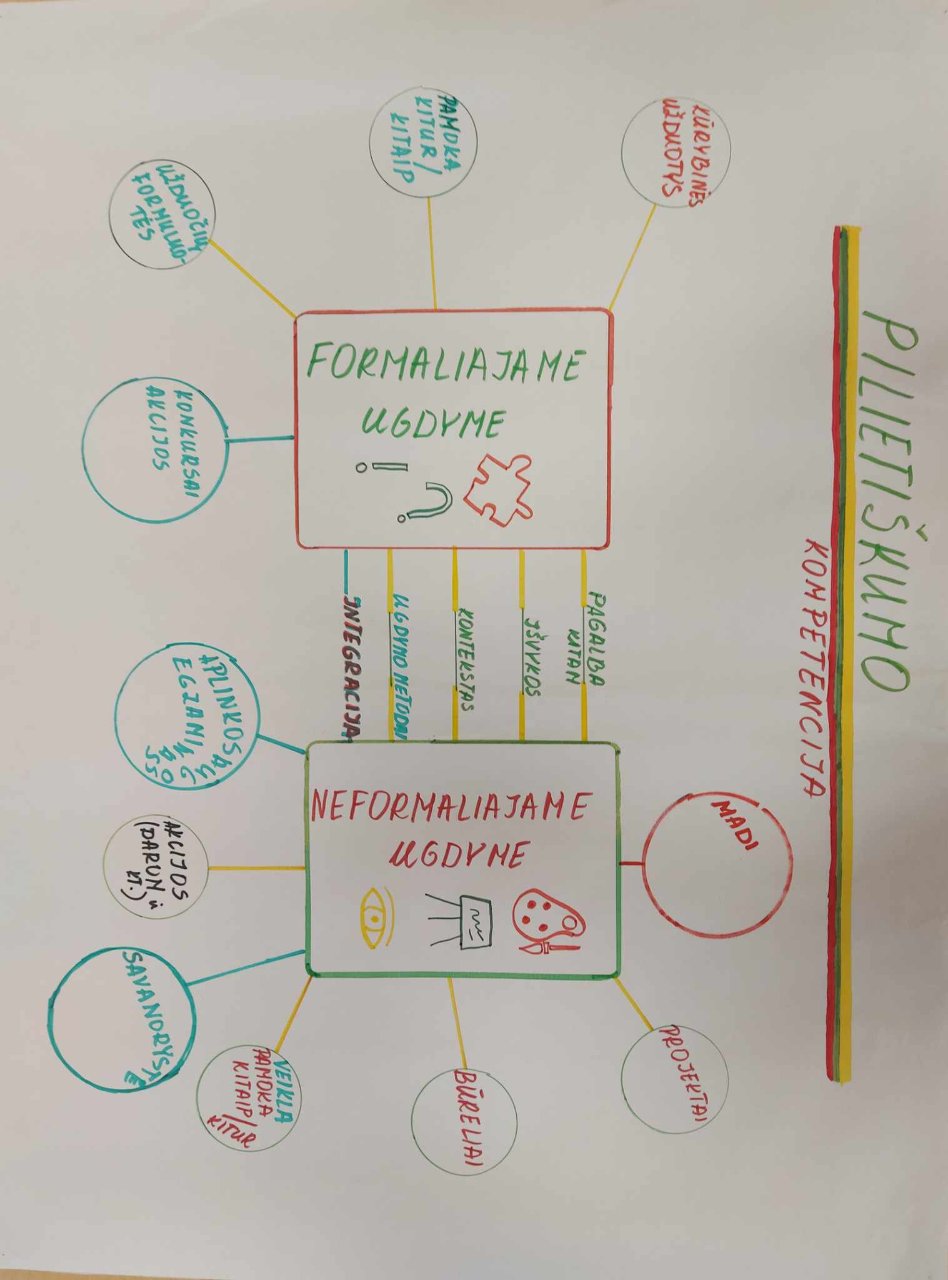 PILIETIŠKUMO
KOMPETENCIJA
KŪRYBINĖS
UŽDUOTYS
PAMOKA
KITUR /
KITAIP
UŽDUOČIŲ
FORMULUO-
TĖS
KONKURSAI
AKCIJOS
FORMALIAJAME
UGDYME
! ?
PAGALBA
KITAM
IŠVYKOS
KONTEKSTAS
UGDYMO METODAI
INTEGRACIJA
NEFORMALIAJAME
UGDYME
MADI
PROJEKTAI
BŪRELIAI
VEIKLA
PAMOKA
KITAIP/
KITUR
SAVANORYSTĖ
AKCIJOS
(DAROM ir
kt.)
APLINKOSAUG